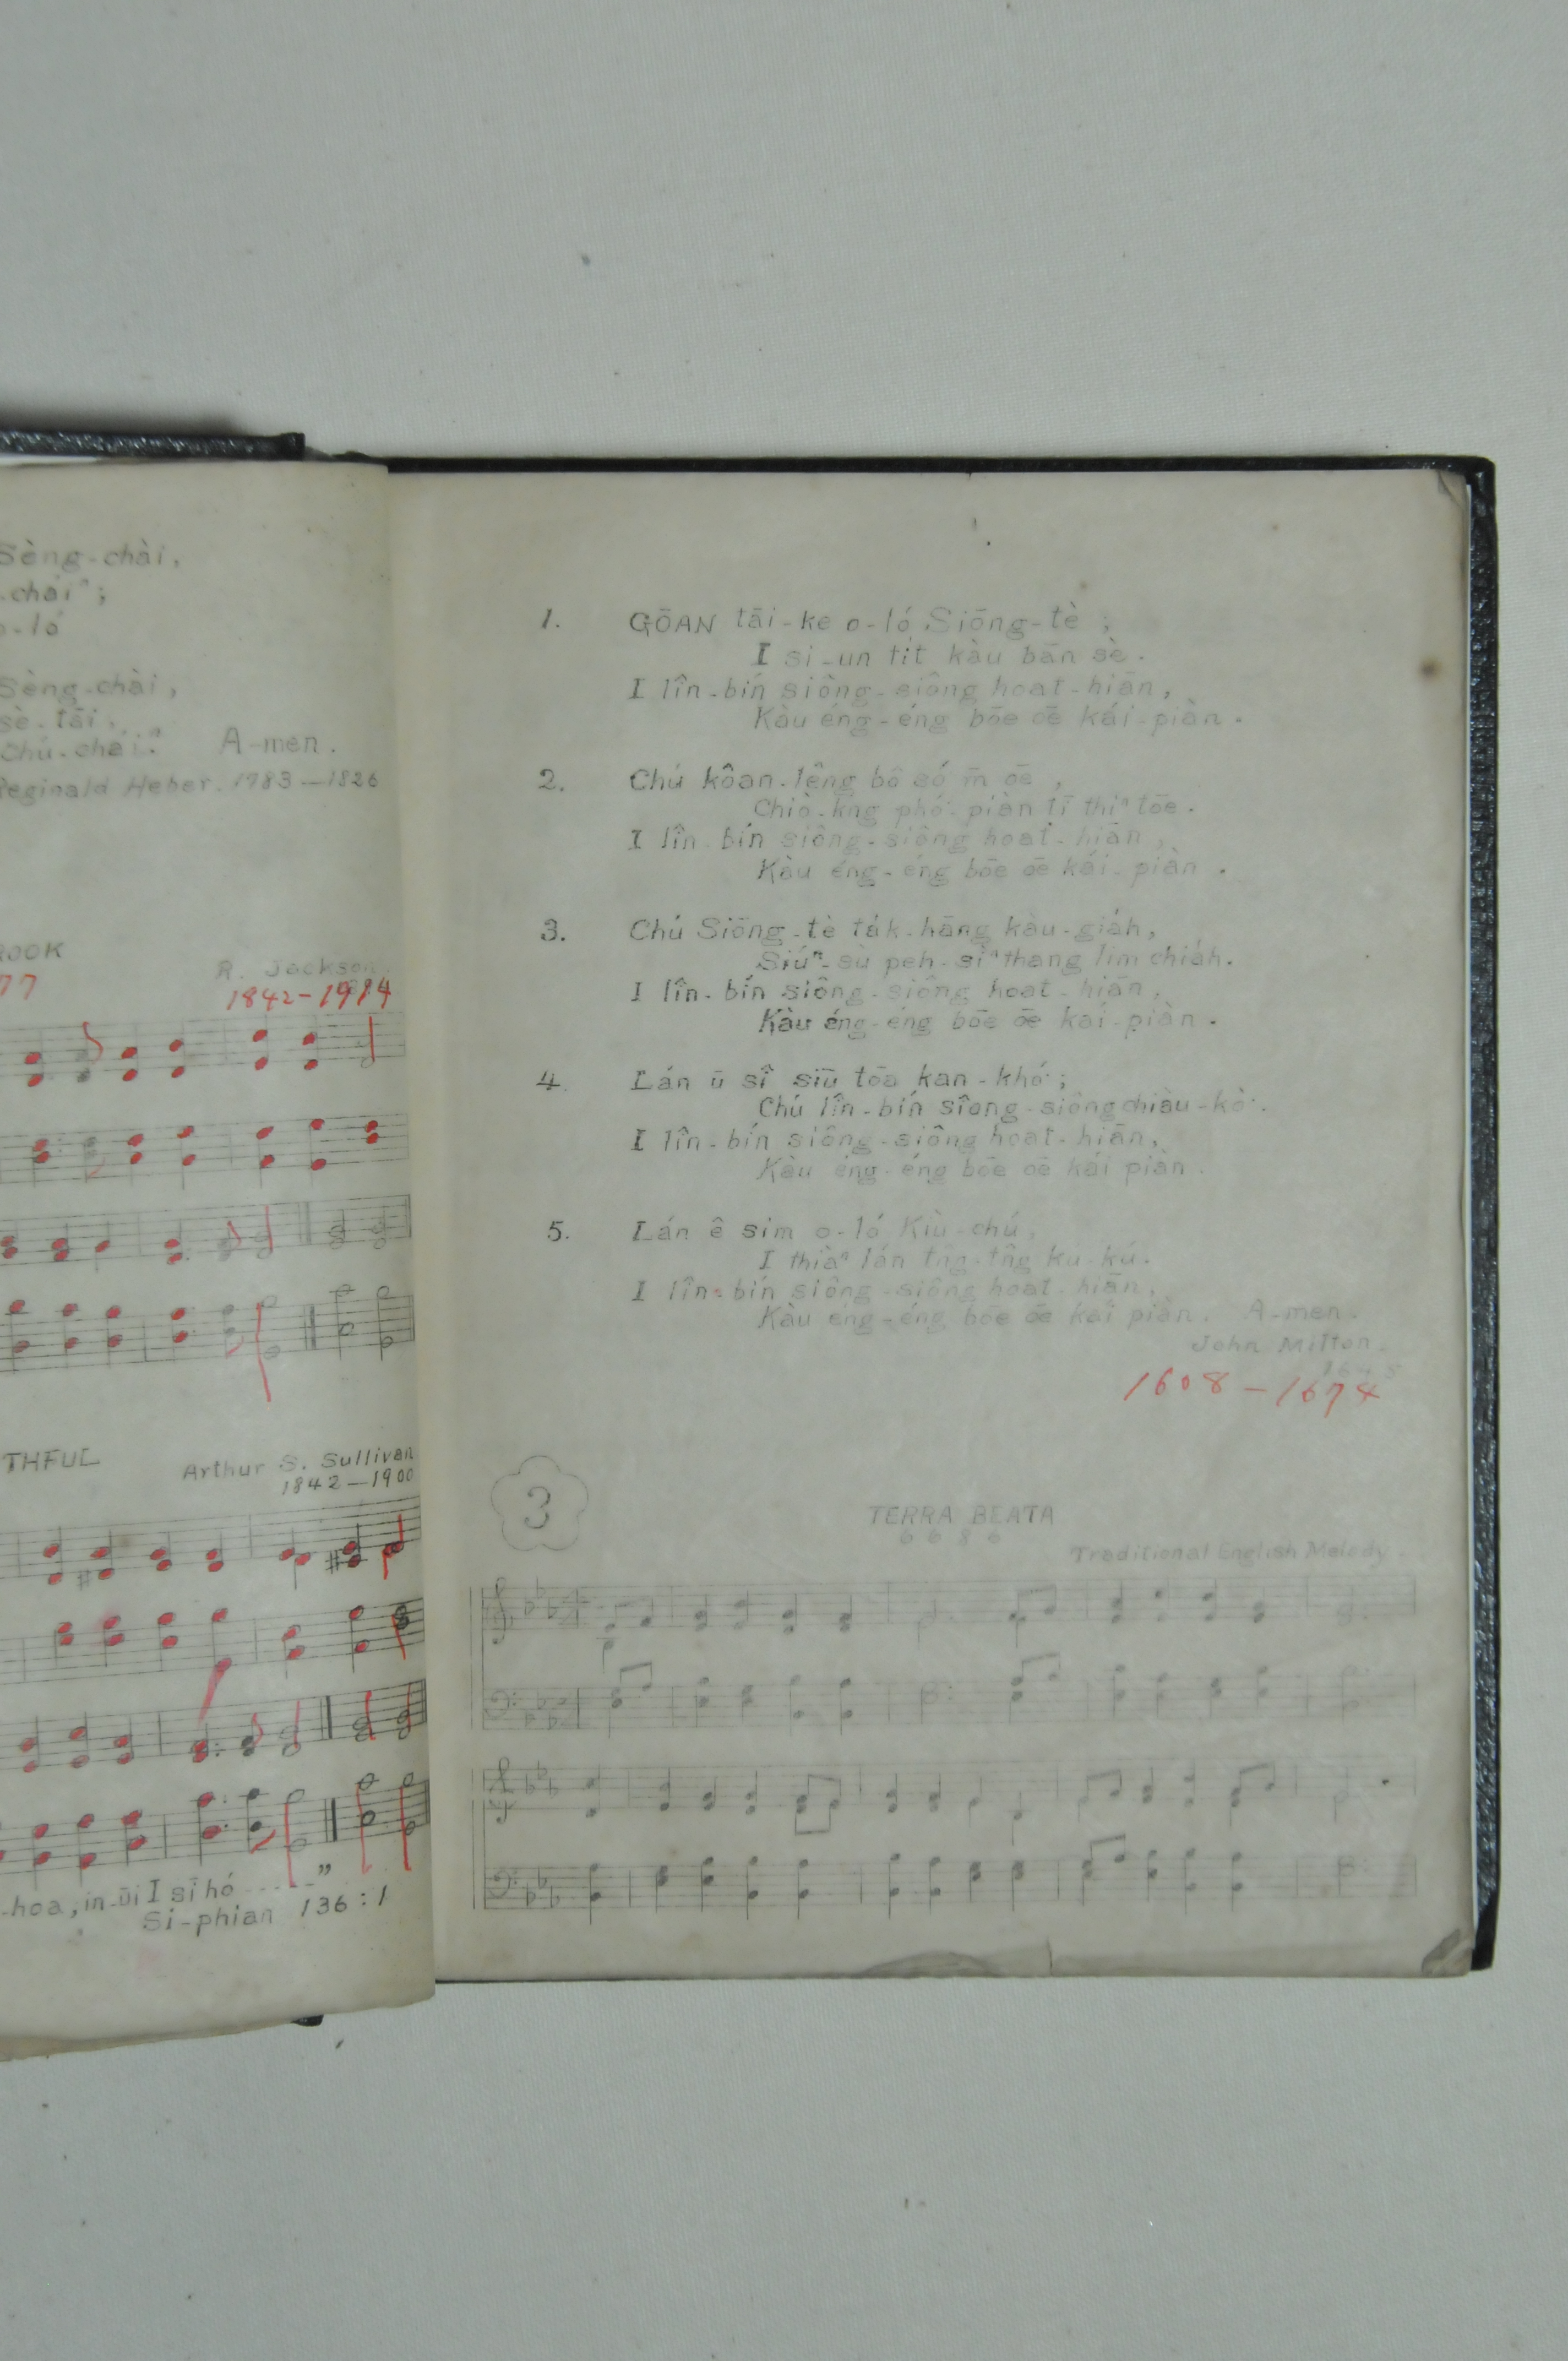 Sèng-chài,
-chāiⁿ;
o-ló
Sèng-chài,
sè-tāi,
Chú-chāiⁿ. A-men.
Reginald Heber. 1783—1826
ROOK
77
R. Jackson
1842-1914
THFUL
Arthur S. Sullivan
1842—1900
-hoa, in-ūi I sī hó ----"
Si-phian 136:1
1. GŌAN tāi-ke o-ló Siōng-tè;
I si-un tit kàu bān sè.
I lîn-bín siông-siông hoat-hiān,
Kàu éng-éng bōe ōe kái-piàn.
2. Chú kôan-lêng bô só m̄ ōe,
Chiò-kng phó-piàn tī thiⁿ tōe.
I lîn-bín siông-siông hoat-hiān,
Kàu éng-éng bōe ōe kái-piàn.
3. Chú Siōng-tè ta̍k-hāng kàu-gia̍h,
Siúⁿ-sù peh-sìⁿ thang lim chia̍h.
I lîn-bín siông-siông hoat-hiān,
Kàu éng-éng bōe ōe kái-piàn.
4. Lán ū sî siū tōa kan-khó͘;
Chú lîn-bín siông-siông chiàu-kò͘.
I lîn-bín siông-siông hoat-hiān,
Kàu éng-éng bōe ōe kái piàn.
5. Lán ê sim o-ló Kiù-chú,
I thiàⁿ lán tn̂g-tn̂g ku-kú.
I lîn-bín siông-siông hoat-hiān,
Kàu éng-éng bōe ōe kái piàn. A-men.
John Milton.
1608-1674
3
TERRA BEATA
6 6 8 6
Traditional English Melody.